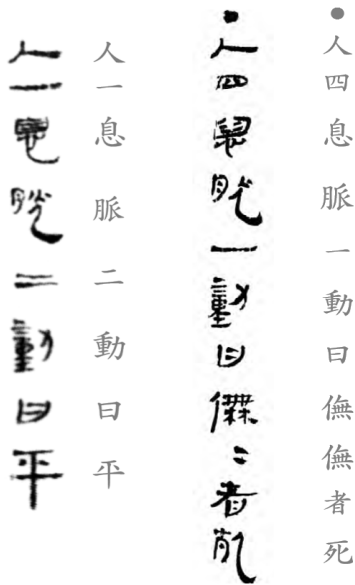 ●人四息脈一動曰㒇㒇者死
●人四息脈一動曰㒇〻者死
人一息脈二動曰平
人一息脈二動曰平